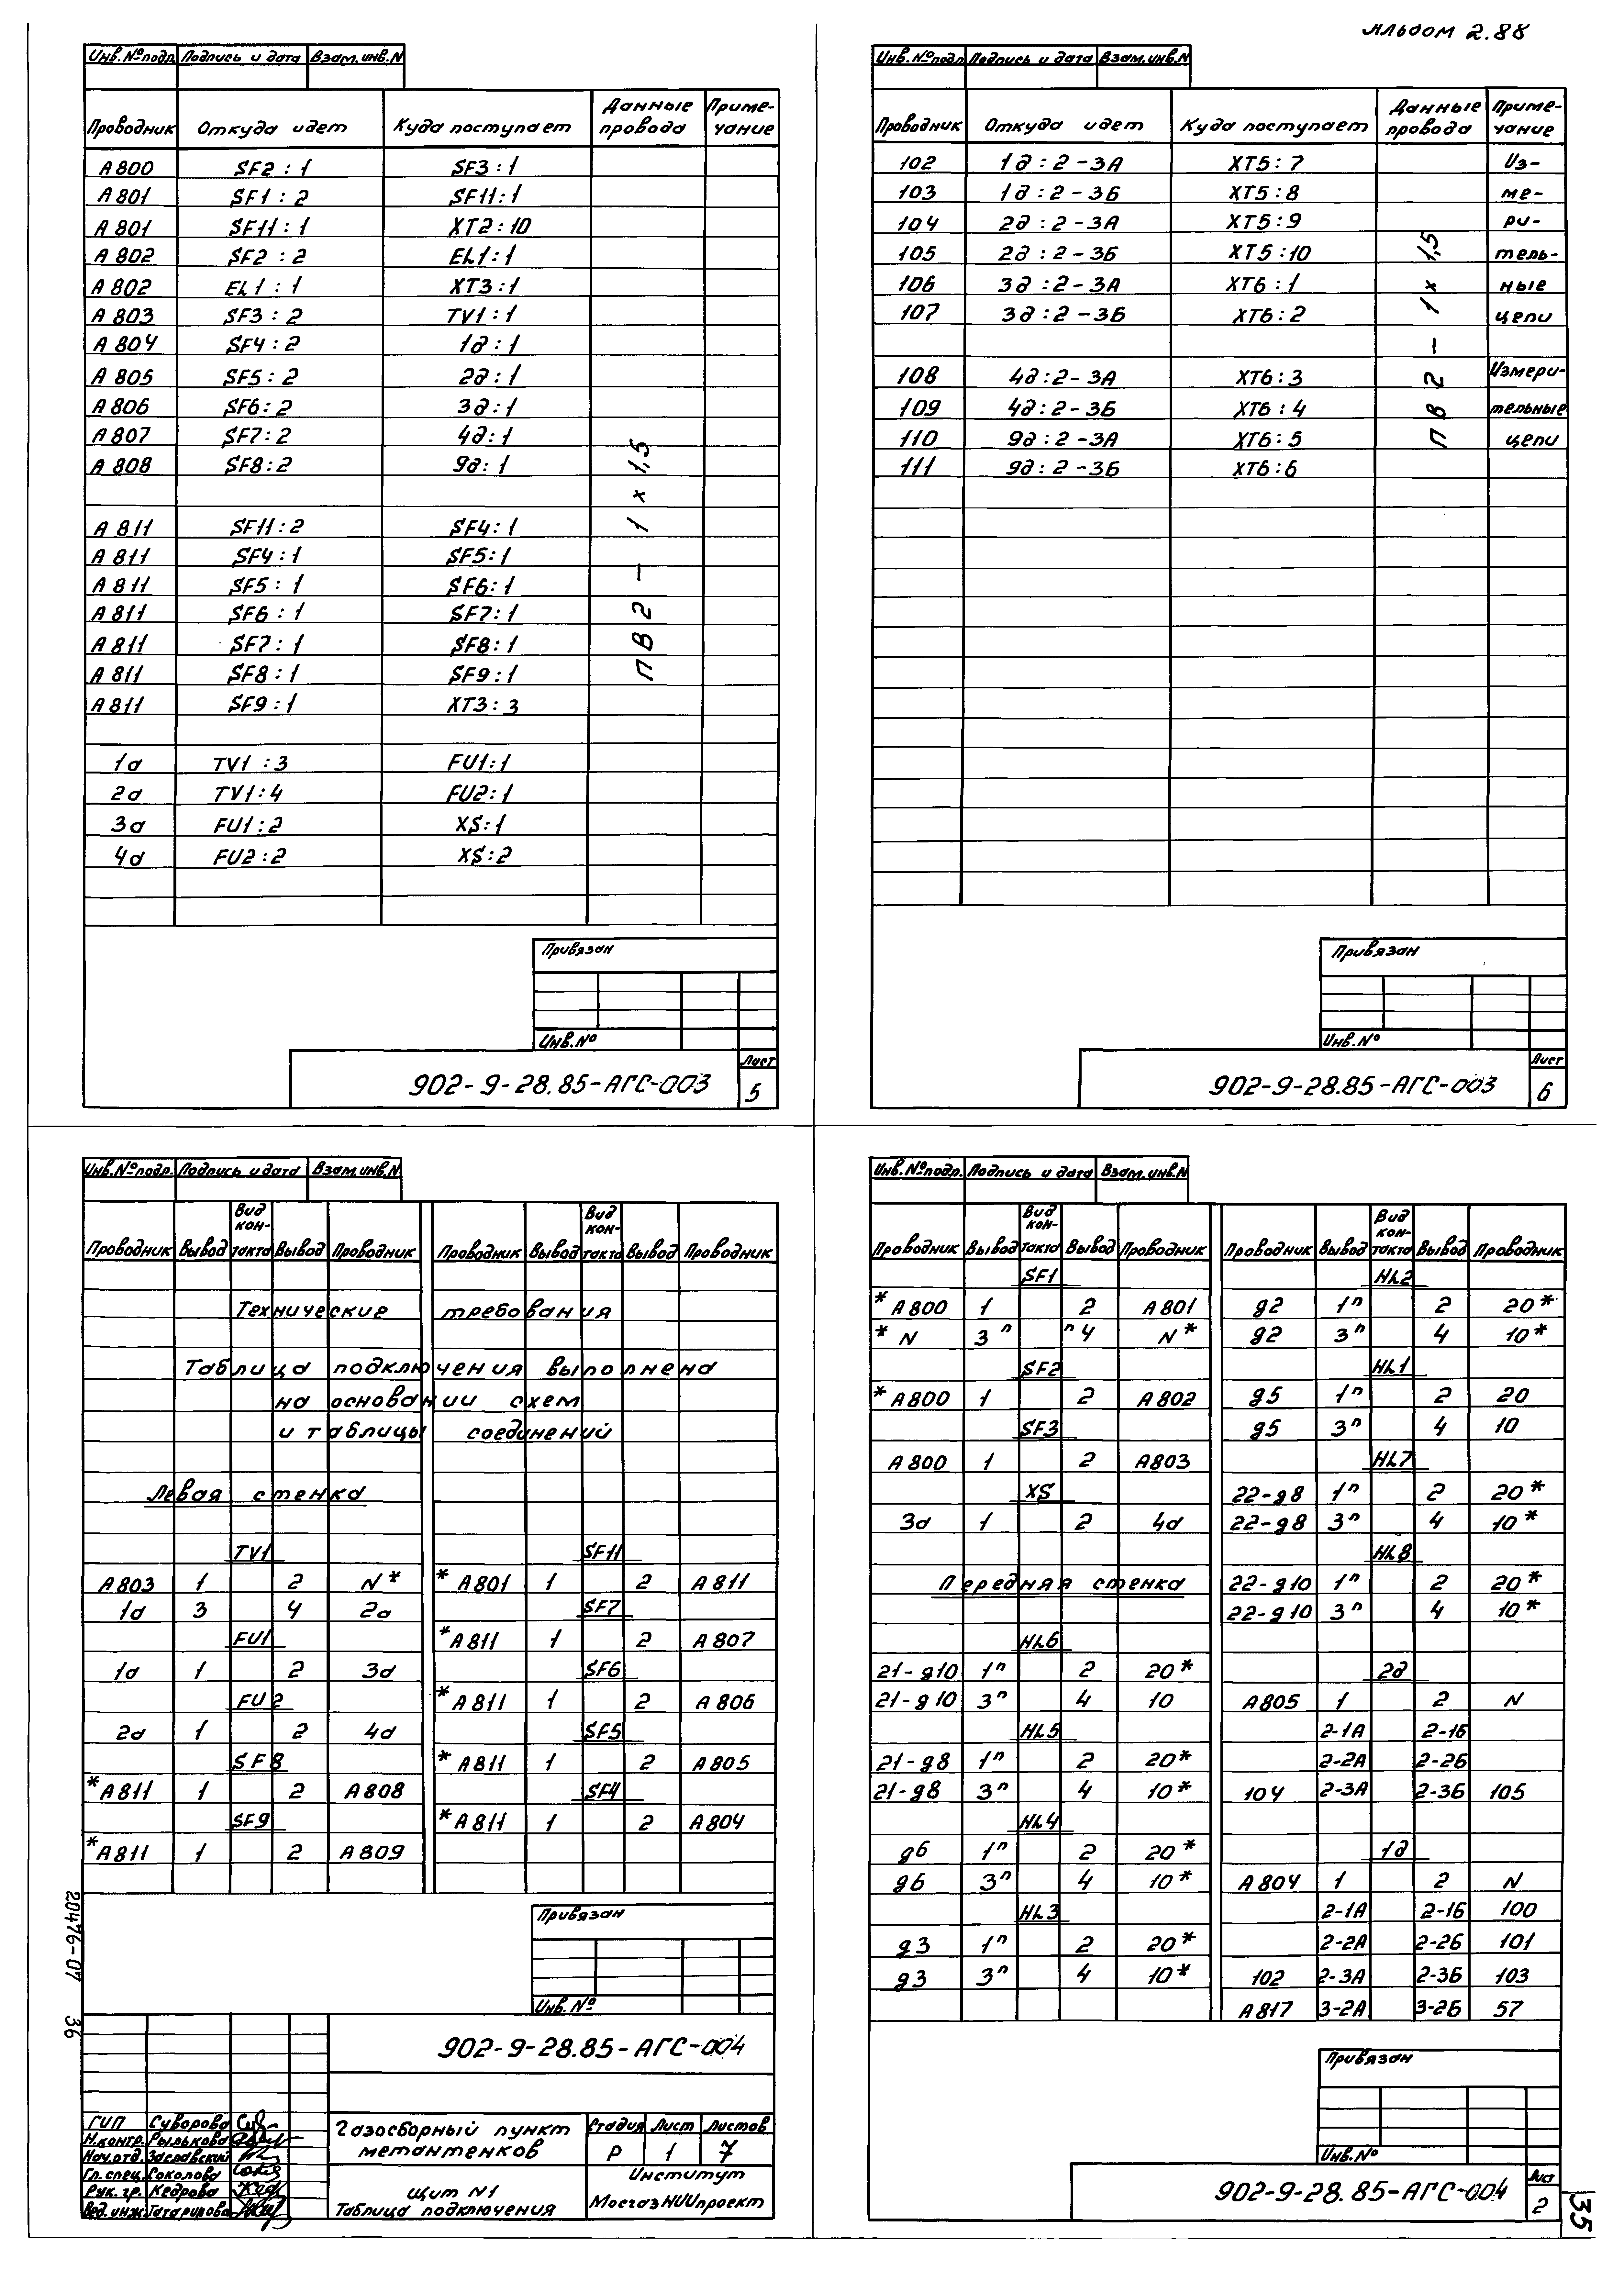 Альбом 2.88
Инв.№подл. Подпись и дата Взам.инв.N
Проводник Откуда идет Куда поступает Данные провода Приме-чание
А800 SF2 : 1 SF3 : 1
А801 SF1 : 2 SF11 : 1
А801 SF11 : 1 XT2 : 10
А802 SF2 : 2 EL1 : 1
А802 EL1 : 1 XT3 : 1
А803 SF3 : 2 TV1 : 1
А804 SF4 : 2 1д : 1
А805 SF5 : 2 2д : 1
А806 SF6 : 2 3д : 1
А807 SF7 : 2 4д : 1
А808 SF8 : 2 9д : 1
А811 SF11 : 2 SF4 : 1
А811 SF4 : 1 SF5 : 1
А811 SF5 : 1 SF6 : 1
А811 SF6 : 1 SF7 : 1
А811 SF7 : 1 SF8 : 1
А811 SF8 : 1 SF9 : 1
А811 SF9 : 1 XT3 : 3
1а TV1 : 3 FU1 : 1
2а TV1 : 4 FU2 : 1
3а FU1 : 2 XS : 1
4а FU2 : 2 XS : 2
ПВ2 – 1 × 1,5
Привязан
Инв.№
902-9-28.85-АГС-003
Лист
5
Инв.№подл. Подпись и дата Взам.инв.N
Проводник Откуда идет Куда поступает Данные провода Приме-чание
102 1д : 2 - 3А XT5 : 7 Из-
103 1д : 2 - 3Б XT5 : 8 ме-
104 2д : 2 - 3А XT5 : 9 ри-
105 2д : 2 - 3Б XT5 : 10 тель-
106 3д : 2 - 3А XT6 : 1 ные
107 3д : 2 - 3Б XT6 : 2 цепи
108 4д : 2 - 3А XT6 : 3 Измери-
109 4д : 2 - 3Б XT6 : 4 тельные
110 9д : 2 - 3А XT6 : 5 цепи
111 9д : 2 - 3Б XT6 : 6
ПВ2 – 1 × 1,5
Привязан
Инв.№
902-9-28.85-АГС-003
Лист
6
Инв.№подл. Подпись и дата Взам.инв.N
Проводник Вывод Вид кон-такта Вывод Проводник Проводник Вывод Вид кон-такта Вывод Проводник
Технические требования
Таблица подключения выполнена
на основании схем
и таблицы соединений
Левая стенка
TV1 SF11
А803 1 2 N* *А801 1 2 А811
1а 3 4 2а SF7
FU1 *А811 1 2 А807
1а 1 2 3а SF6
FU2 *А811 1 2 А806
2а 1 2 4а SF5
SF8 *А811 1 2 А805
*А811 1 2 А808 SF4
SF9 *А811 1 2 А804
*А811 1 2 А809
Привязан
Инв.№
902-9-28.85-АГС-004
ГИП Суворова
Н.контр. Рылькова
Нач.отд. Заславский
Гл.спец. Соколова
Рук.гр. Кедрова
Вед.инж. Татаринова
Газосборный пункт
метантенков
Стадия Лист Листов
Р 1 7
Щит N1
Таблица подключения
Институт
МосгазНИИпроект
20476-07 36
Инв.№подл. Подпись и дата Взам.инв.N
Проводник Вывод Вид кон-такта Вывод Проводник Проводник Вывод Вид кон-такта Вывод Проводник
SF1 HL2
*А800 1 2 А801 g2 1п 2 20*
*N 3п п4 N* g2 3п 4 10*
SF2 HL1
*А800 1 2 А802 g5 1п 2 20
SF3 g5 3п 4 10
А800 1 2 А803 HL7
XS 22-g8 1п 2 20*
3а 1 2 4а 22-g8 3п 4 10*
HL8
Передняя стенка 22-g10 1п 2 20*
22-g10 3п 4 10*
HL6
21-g10 1п 2 20* 2д
21-g10 3п 4 10 А805 1 2 N
HL5 2-1А 2-1Б
21-g8 1п 2 20* 2-2А 2-2Б
21-g8 3п 4 10* 104 2-3А 2-3Б 105
HL4
g6 1п 2 20* 1д
g6 3п 4 10* А804 1 2 N
HL3 2-1А 2-1Б 100
g3 1п 2 20* 2-2А 2-2Б 101
g3 3п 4 10* 102 2-3А 2-3Б 103
А817 3-2А 3-2Б 57
Привязан
Инв.№
902-9-28.85-АГС-004
Лист
2
35